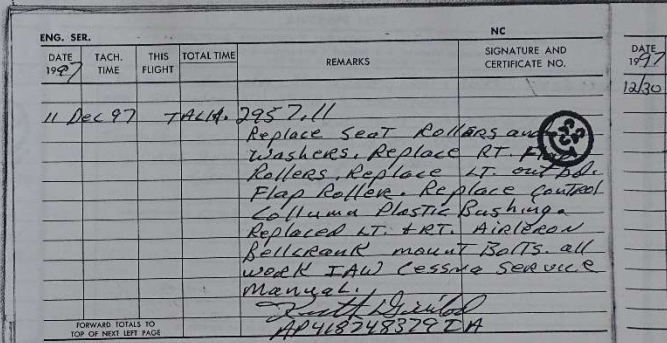 ENG. SER.
NC
DATE
1997
TACH. TIME
THIS FLIGHT
TOTAL TIME
REMARKS
SIGNATURE AND CERTIFICATE NO.
DATE
1997
12/30
11 Dec 97 TACH. 2957.11
Replace Seat Rollers and
washers. Replace RT. Flap
Rollers. Replace LT. outbd.
Flap Roller. Replace Control
Collumn Plastic Bushing.
Replaced LT. + RT. Airleron
Bellcrank mount Bolts. all
work IAW Cessna Service
manual.
AP418748379 IA
FORWARD TOTALS TO
TOP OF NEXT LEFT PAGE